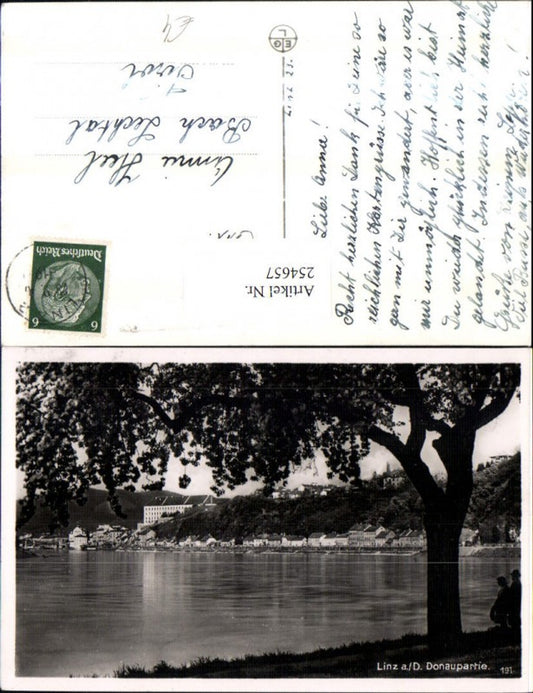 Liebe Anna!
Recht herzlichen Dank für Deine so
reichlichen Kartengrüsse. Ich wäre so
gern mit Dir gewandert, aber es war
mir unmöglich. Hoffentlich bist
Du wieder glücklich in der Heimat
gelandet. Indessen recht herzliche
Grüße von
Viel
Heel
Bach Lechtal
Tirol
Deutsches Reich
6 6
Artikel Nr.
254657
EG
L
Linz a./D. Donaupartie.
191